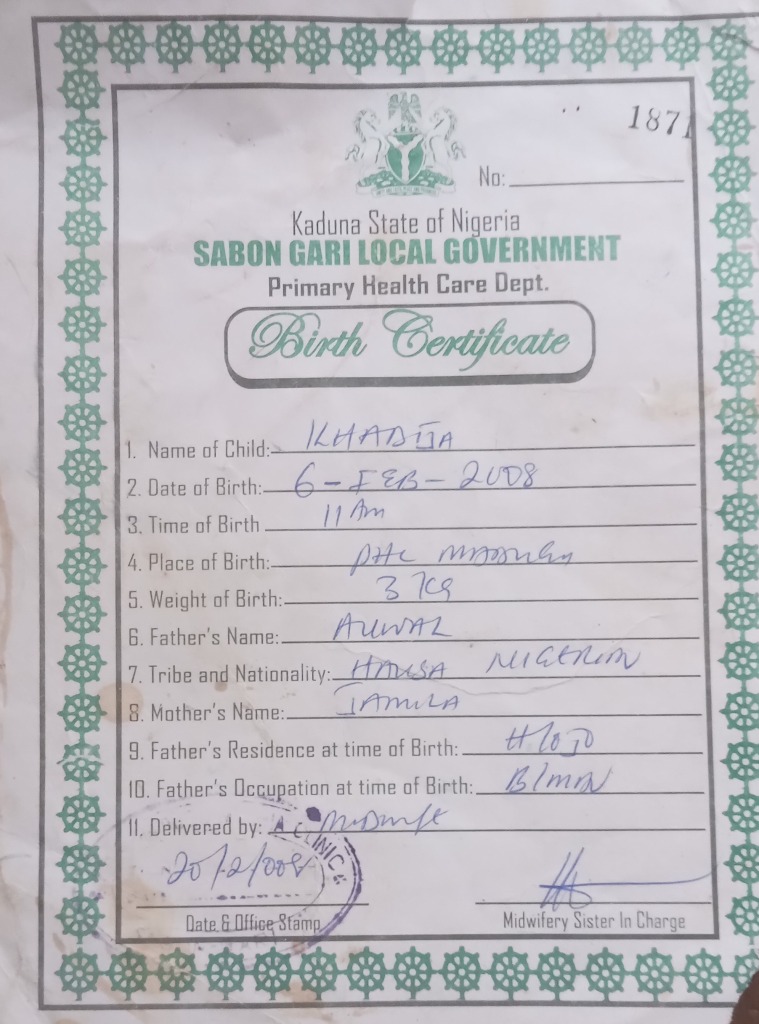 1871
No:
Kaduna State of Nigeria
SABON GARI LOCAL GOVERNMENT
Primary Health Care Dept.
Birth Certificate
1. Name of Child: KHADIJA
2. Date of Birth: 6 - FEB - 2008
3. Time of Birth 11 Am
4. Place of Birth: PHC
5. Weight of Birth: 3 Kg
6. Father's Name: AUWAL
7. Tribe and Nationality: HAUSA NIGERIAN
8. Mother's Name: JAMILA
9. Father's Residence at time of Birth:
10. Father's Occupation at time of Birth: B/MAN
11. Delivered by: Midwife
CLINIC
20/2/008
Date & Office Stamp
Midwifery Sister In Charge